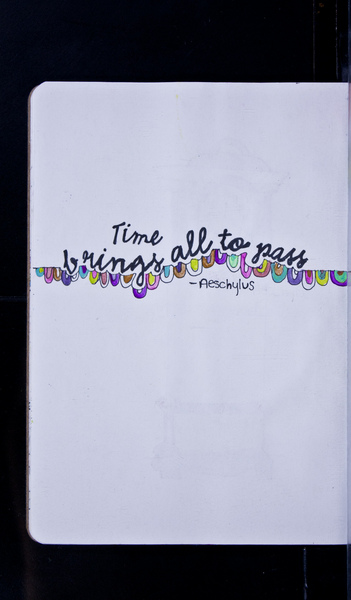 Time
brings all to pass
-Aeschylus